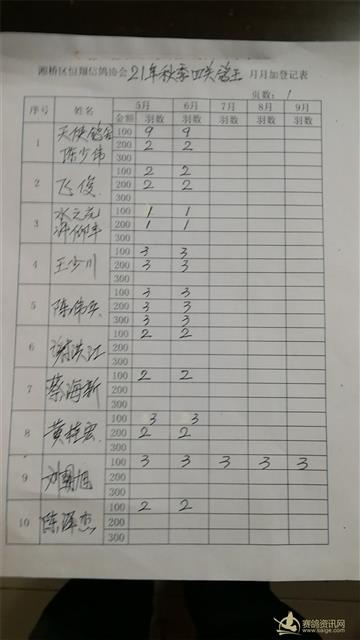 湘桥区恒翔信鸽协会 21年秋季四关鸽王 月月加登记表
页数：1
序号 姓名 5月 6月 7月 8月 9月
金额 羽数 羽数 羽数 羽数 羽数
1 天使鸽舍 陈少伟
100 9 9
200 2 2
300
2 飞俊
100 2 2
200 2 2
300
3
100 1 1
200 1 1
300
4 王少川
100 3 3
200 3 3
300
5 陈伟兵
100 3 3
200 3 3
300 3 3
6 谢洪江
100 2 2
200
300
7 蔡海新
100 2 2
200
300
8 黄桂宏
100 3 3
200 2 2
300
9 刘朝旭
100 3 3 3 3 3
200
300
10 陈泽杰
100 2 2
200
300
赛鸽资讯网
www.saige.com